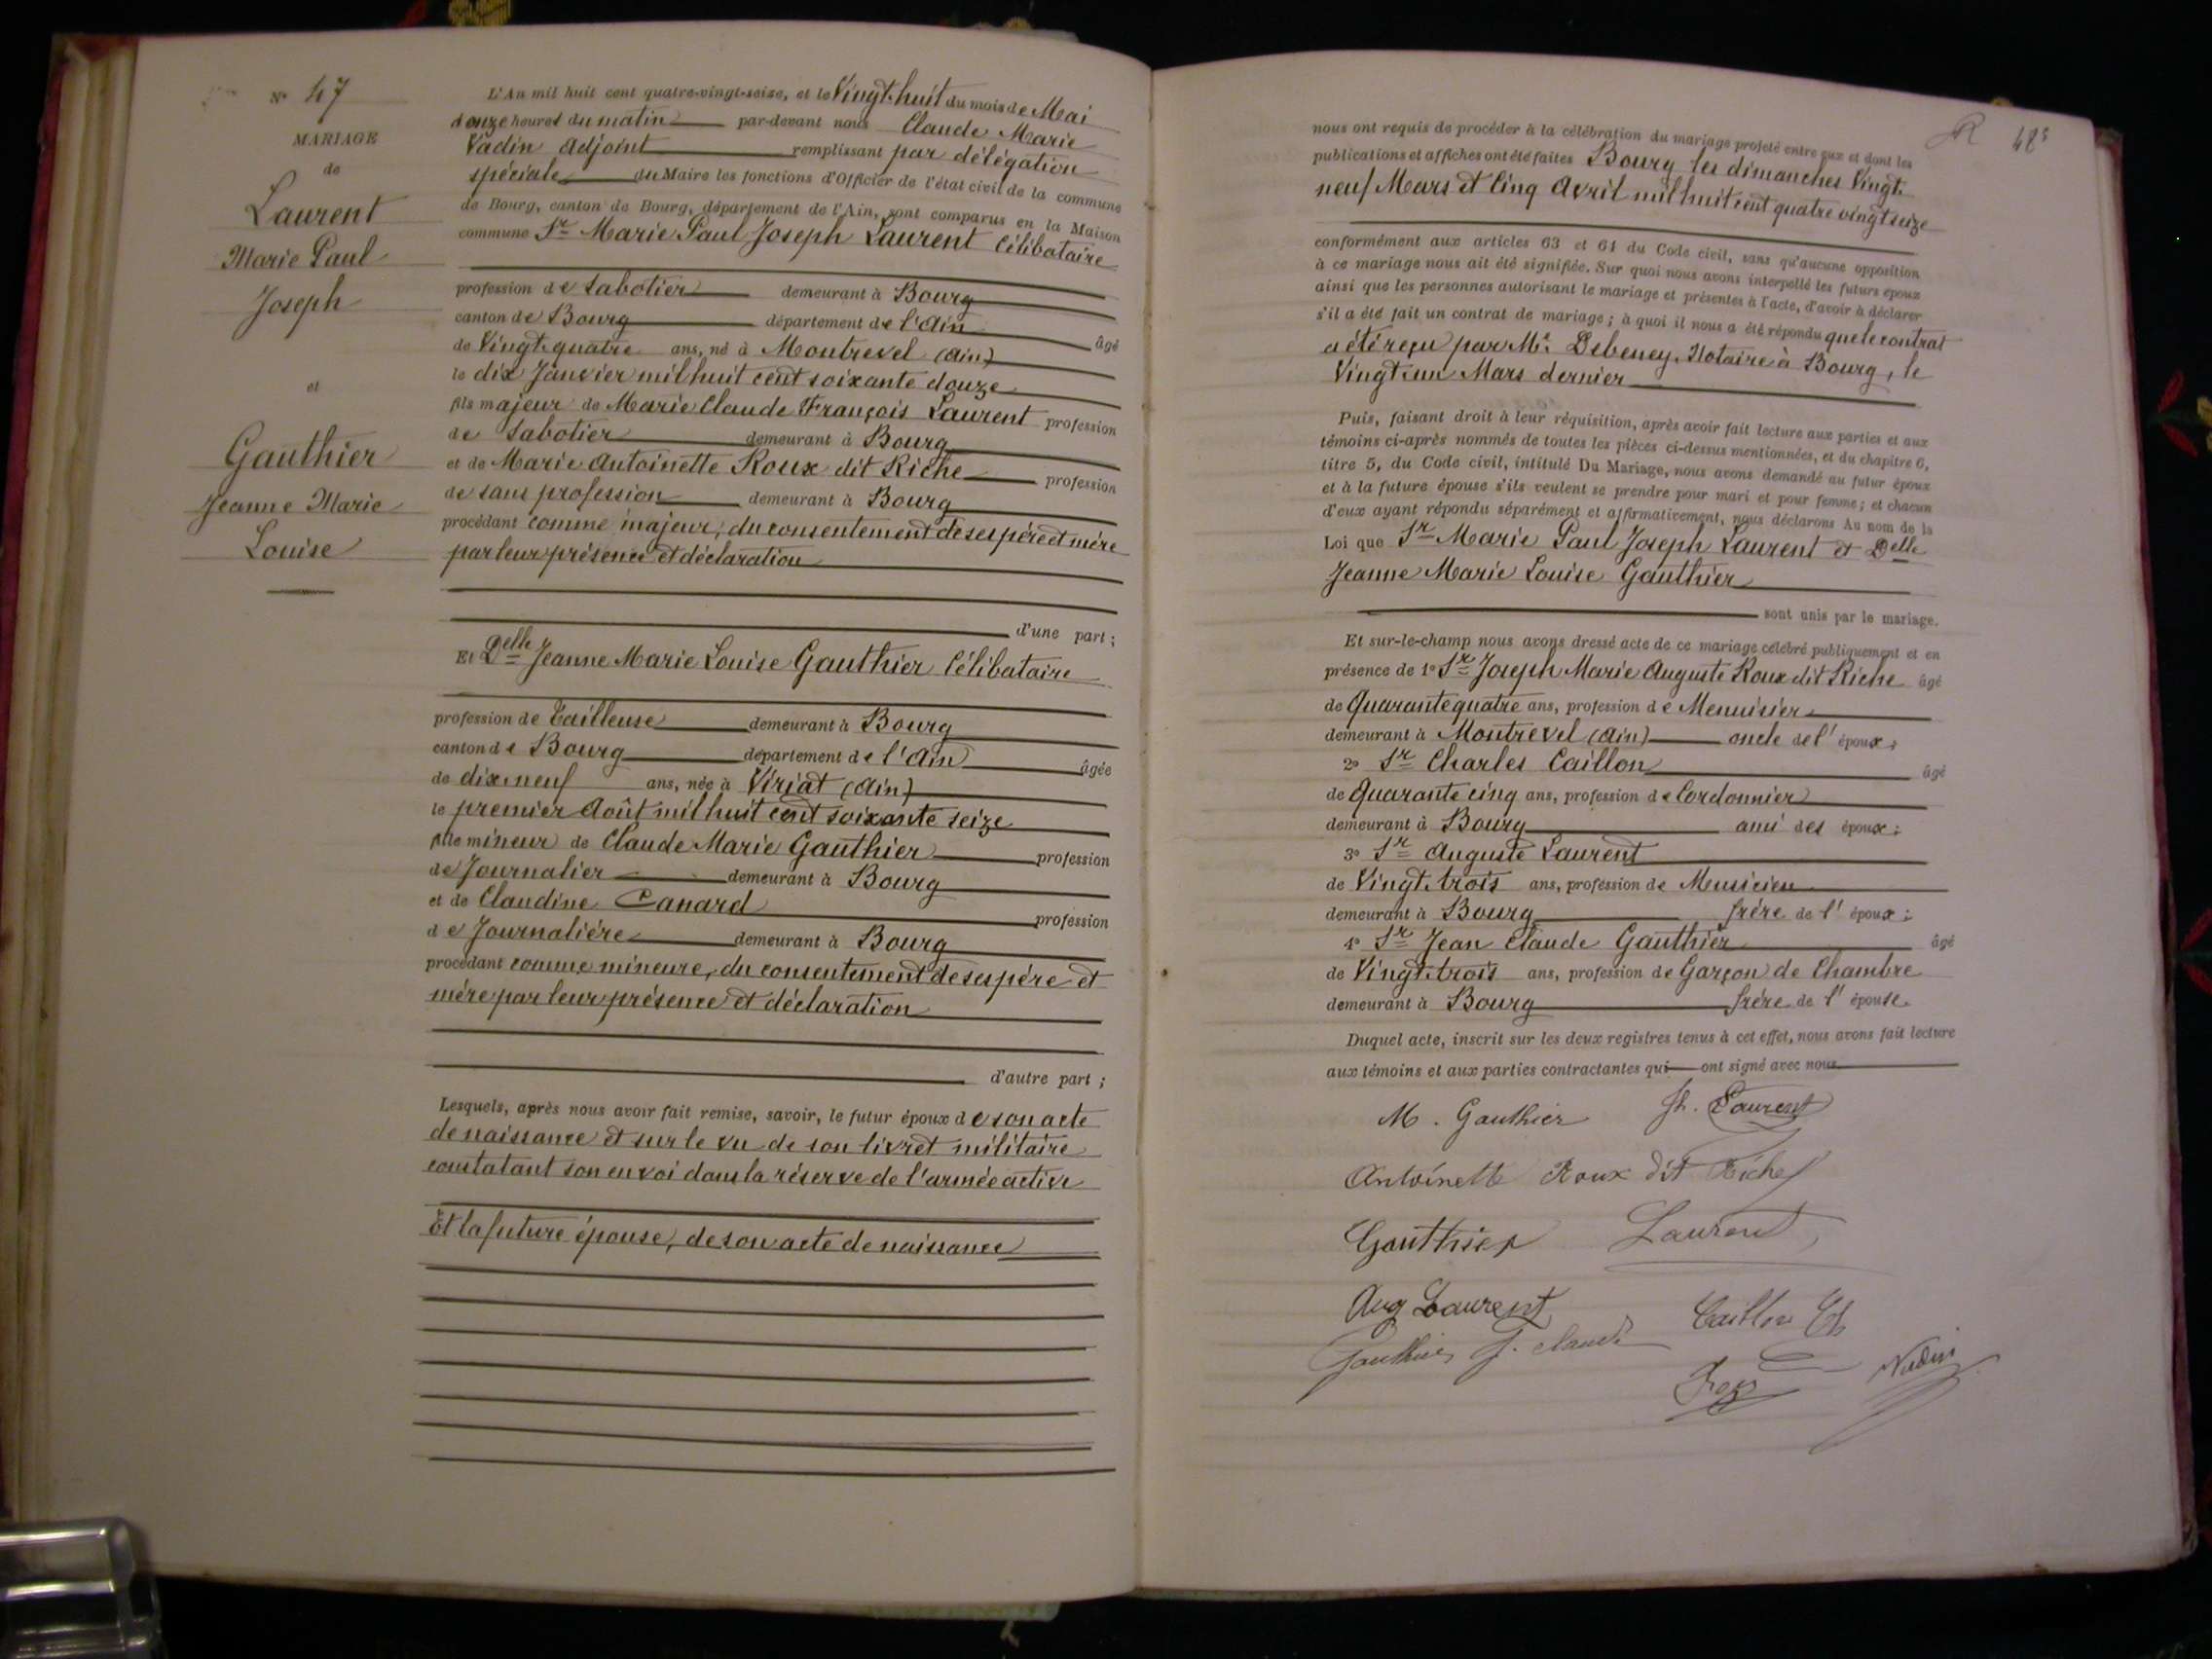 N° 47
MARIAGE
de
Laurent
Marie Paul
Joseph
et
Gauthier
Jeanne Marie
Louise
L'An mil huit cent quatre-vingt-seize, et le Vingt-huit du mois de Mai
à onze heures du matin par-devant nous Claude Marie
Vadin adjoint remplissant par délégation
spéciale du Maire les fonctions d'Officier de l'état civil de la commune
de Bourg, canton de Bourg, département de l'Ain, sont comparus en la Maison
commune Sr Marie Paul Joseph Laurent Célibataire
profession de Sabotier demeurant à Bourg
canton de Bourg département de l'Ain âgé
de Vingt-quatre ans, né à Montrevel (Ain)
le dix Janvier mil huit cent soixante douze
fils majeur de Marie Claude François Laurent profession
de Sabotier demeurant à Bourg
et de Marie Antoinette Roux dit Riche profession
de sans profession demeurant à Bourg
procédant comme majeur, du consentement de ses père et mère
par leur présence et déclaration
d'une part ;
Et Delle Jeanne Marie Louise Gauthier Célibataire
profession de Tailleuse demeurant à Bourg
canton de Bourg département de l'Ain âgée
de dix-neuf ans, née à Viriat (Ain)
le premier Août mil huit cent soixante seize
fille mineur de Claude Marie Gauthier profession
de Journalier demeurant à Bourg
et de Claudine Canard profession
de Journalière demeurant à Bourg
procédant comme mineure, du consentement de ses père et
mère par leur présence et déclaration
d'autre part ;
Lesquels, après nous avoir fait remise, savoir, le futur époux de son acte
de naissance et sur le vu de son livret militaire
constatant son envoi dans la réserve de l'armée active
Et la future épouse, de son acte de naissance
R 48e
nous ont requis de procéder à la célébration du mariage projeté entre eux et dont les
publications et affiches ont été faites Bourg les dimanches Vingt-
neuf Mars et Cinq Avril mil huit cent quatre vingt seize
conformément aux articles 63 et 64 du Code civil, sans qu'aucune opposition
à ce mariage nous ait été signifiée. Sur quoi nous avons interpellé les futurs époux
ainsi que les personnes autorisant le mariage et présentes à l'acte, d'avoir à déclarer
s'il a été fait un contrat de mariage ; à quoi il nous a été répondu que le contrat
a été reçu par Me. Debeney, Notaire à Bourg, le
Vingt-un Mars dernier
Puis, faisant droit à leur réquisition, après avoir fait lecture aux parties et aux
témoins ci-après nommés de toutes les pièces ci-dessus mentionnées, et du chapitre 6,
titre 5, du Code civil, intitulé Du Mariage, nous avons demandé au futur époux
et à la future épouse s'ils veulent se prendre pour mari et pour femme ; et chacun
d'eux ayant répondu séparément et affirmativement, nous déclarons Au nom de la
Loi que Sr Marie Paul Joseph Laurent et Delle
Jeanne Marie Louise Gauthier
sont unis par le mariage.
Et sur-le-champ nous avons dressé acte de ce mariage célébré publiquement et en
présence de 1° Sr Joseph Marie Auguste Roux dit Riche âgé
de Quarante quatre ans, profession de Menuisier
demeurant à Montrevel (Ain) oncle de l'époux ;
2° Sr Charles Caillon âgé
de Quarante cinq ans, profession de Cordonnier
demeurant à Bourg ami des époux ;
3° Sr Auguste Laurent
de Vingt-trois ans, profession de Musicien
demeurant à Bourg frère de l'époux ;
4° Sr Jean Claude Gauthier âgé
de Vingt-trois ans, profession de Garçon de Chambre
demeurant à Bourg frère de l'épouse.
Duquel acte, inscrit sur les deux registres tenus à cet effet, nous avons fait lecture
aux témoins et aux parties contractantes qui ont signé avec nous.
M. Gauthier Jh. Laurent
Antoinette Roux dit Riche
Gauthier Laurent
Aug Laurent Caillon Ch
Gauthier J. Claude
Vadin